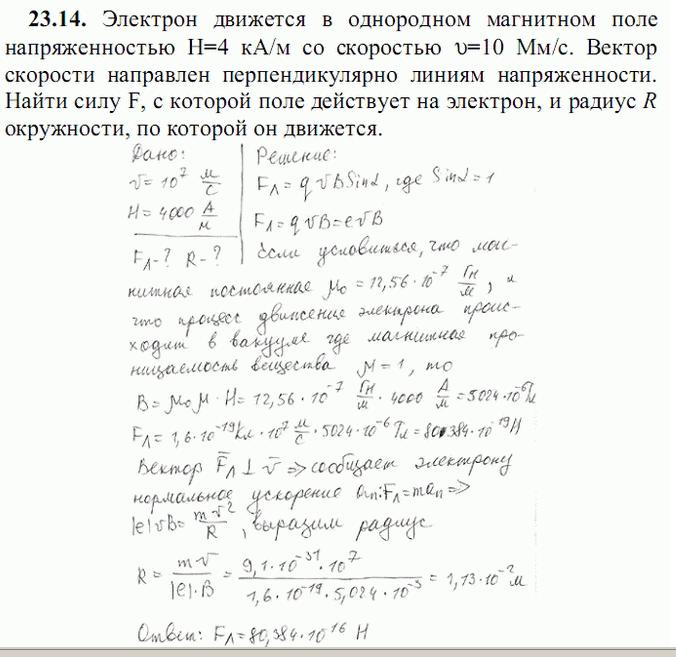 23.14. Электрон движется в однородном магнитном поле
напряженностью Н=4 кА/м со скоростью υ=10 Мм/с. Вектор
скорости направлен перпендикулярно линиям напряженности.
Найти силу F, с которой поле действует на электрон, и радиус R
окружности, по которой он движется.
Дано:
v = 10⁷ м/с
H = 4000 А/м
Fл-? R-?
Решение:
Fл = q v B Sinα, где Sinα = 1
Fл = q v B = e v B
Если условиться, что маг-
нитная постоянная μ₀ = 12,56·10⁻⁷ Гн/м, и
что процесс движения электрона проис-
ходит в вакууме где магнитная про-
ницаемость вещества μ = 1, то
B = μ₀ μ · H = 12,56 · 10⁻⁷ Гн/м · 4000 А/м = 5024·10⁻⁶ Тл
Fл = 1,6·10⁻¹⁹ Кл · 10⁷ м/с · 5024·10⁻⁶ Тл = 80,384·10⁻¹⁹ Н
Вектор F̅л ⊥ v̅ => сообщает электрону
нормальное ускорение aₙ: Fл = maₙ =>
|e|vB = mv²/R, выразим радиус
R = mv/|e|·B = 9,1·10⁻³¹·10⁷/1,6·10⁻¹⁹·5,024·10⁻³ = 1,13·10⁻² м
Ответ: Fл = 80,384·10⁻¹⁶ Н